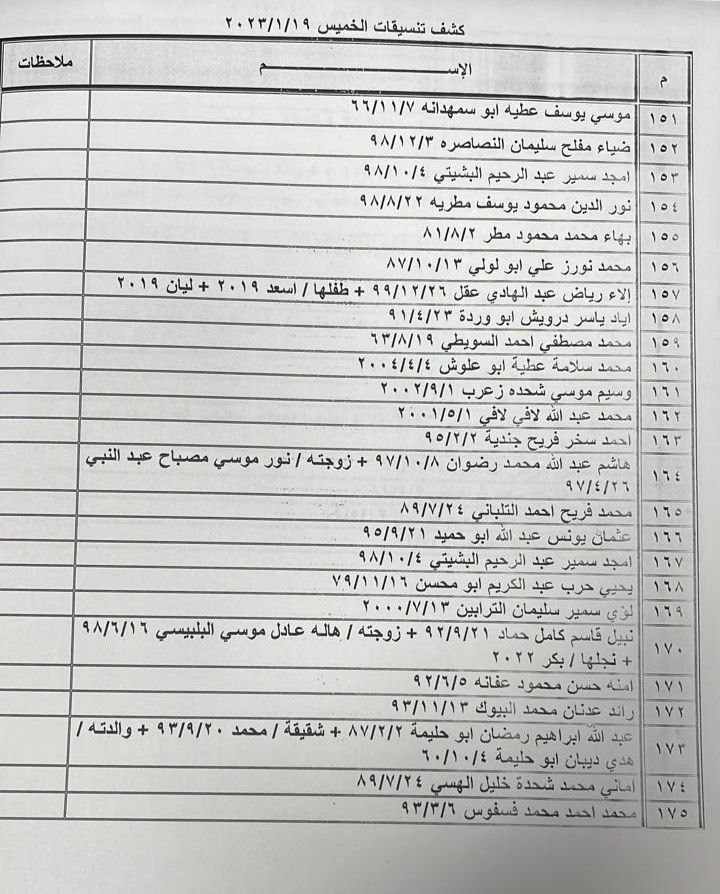 كشف تنسيقات الخميس ٢٠٢٣/١/١٩
م الإســـم ملاحظات
١٥١ موسي يوسف عطيه ابو سمهدانه ٦٦/١١/٧
١٥٢ ضياء مفلح سليمان النصاصره ٩٨/١٢/٣
١٥٣ امجد سمير عبد الرحيم البشيتي ٩٨/١٠/٤
١٥٤ نور الدين محمود يوسف مطريه ٩٨/٨/٢٢
١٥٥ بهاء محمد محمود مطر ٨١/٨/٢
١٥٦ محمد نورز علي ابو لولي ٨٧/١٠/١٣
١٥٧ إلاء رياض عبد الهادي عقل ٩٩/١٢/٢٦ + طفلها / اسعد ٢٠١٩ + ليان ٢٠١٩
١٥٨ اياد ياسر درويش ابو وردة ٩١/٤/٢٣
١٥٩ محمد مصطفي احمد السويطي ٦٣/٨/١٩
١٦٠ محمد سلامة عطية ابو علوش ٢٠٠٤/٤/٤
١٦١ وسيم موسي شحده زعرب ٢٠٠٢/٩/١
١٦٢ محمد عبد الله لافي لافي ٢٠٠١/٥/١
١٦٣ احمد سخر فريح جندية ٩٥/٢/٢
١٦٤ هاشم عبد الله محمد رضوان ٩٧/١٠/٨ + زوجته / نور موسي مصباح عبد النبي
٩٧/٤/٢٦
١٦٥ محمد فريح احمد التلباني ٨٩/٧/٢٤
١٦٦ عثمان يونس عبد الله ابو حميد ٩٥/٩/٢١
١٦٧ امجد سمير عبد الرحيم البشيتي ٩٨/١٠/٤
١٦٨ يحيي حرب عبد الكريم ابو محسن ٧٩/١١/١٦
١٦٩ لؤي سمير سليمان الترابين ٢٠٠٠/٧/١٣
١٧٠ نبيل قاسم كامل حماد ٩٢/٩/٢١ + زوجته / هاله عادل موسي البلبيسي ٩٨/٦/١٦
+ نجلها / بكر ٢٠٢٢
١٧١ امنه حسن محمود عفانه ٩٢/٦/٥
١٧٢ رائد عدنان محمد البيوك ٩٣/١١/١٣
١٧٣ عبد الله ابراهيم رمضان ابو حليمة ٨٧/٢/٢ + شقيقة / محمد ٩٣/٩/٢٠ + والدته /
هدي ديبان ابو حليمة ٦٠/١٠/٤
١٧٤ اماني محمد شحدة خليل الهسي ٨٩/٧/٢٤
١٧٥ محمد احمد محمد فسفوس ٩٣/٣/٦